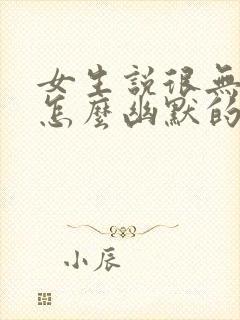 女生說很無
怎麼幽默的
小辰